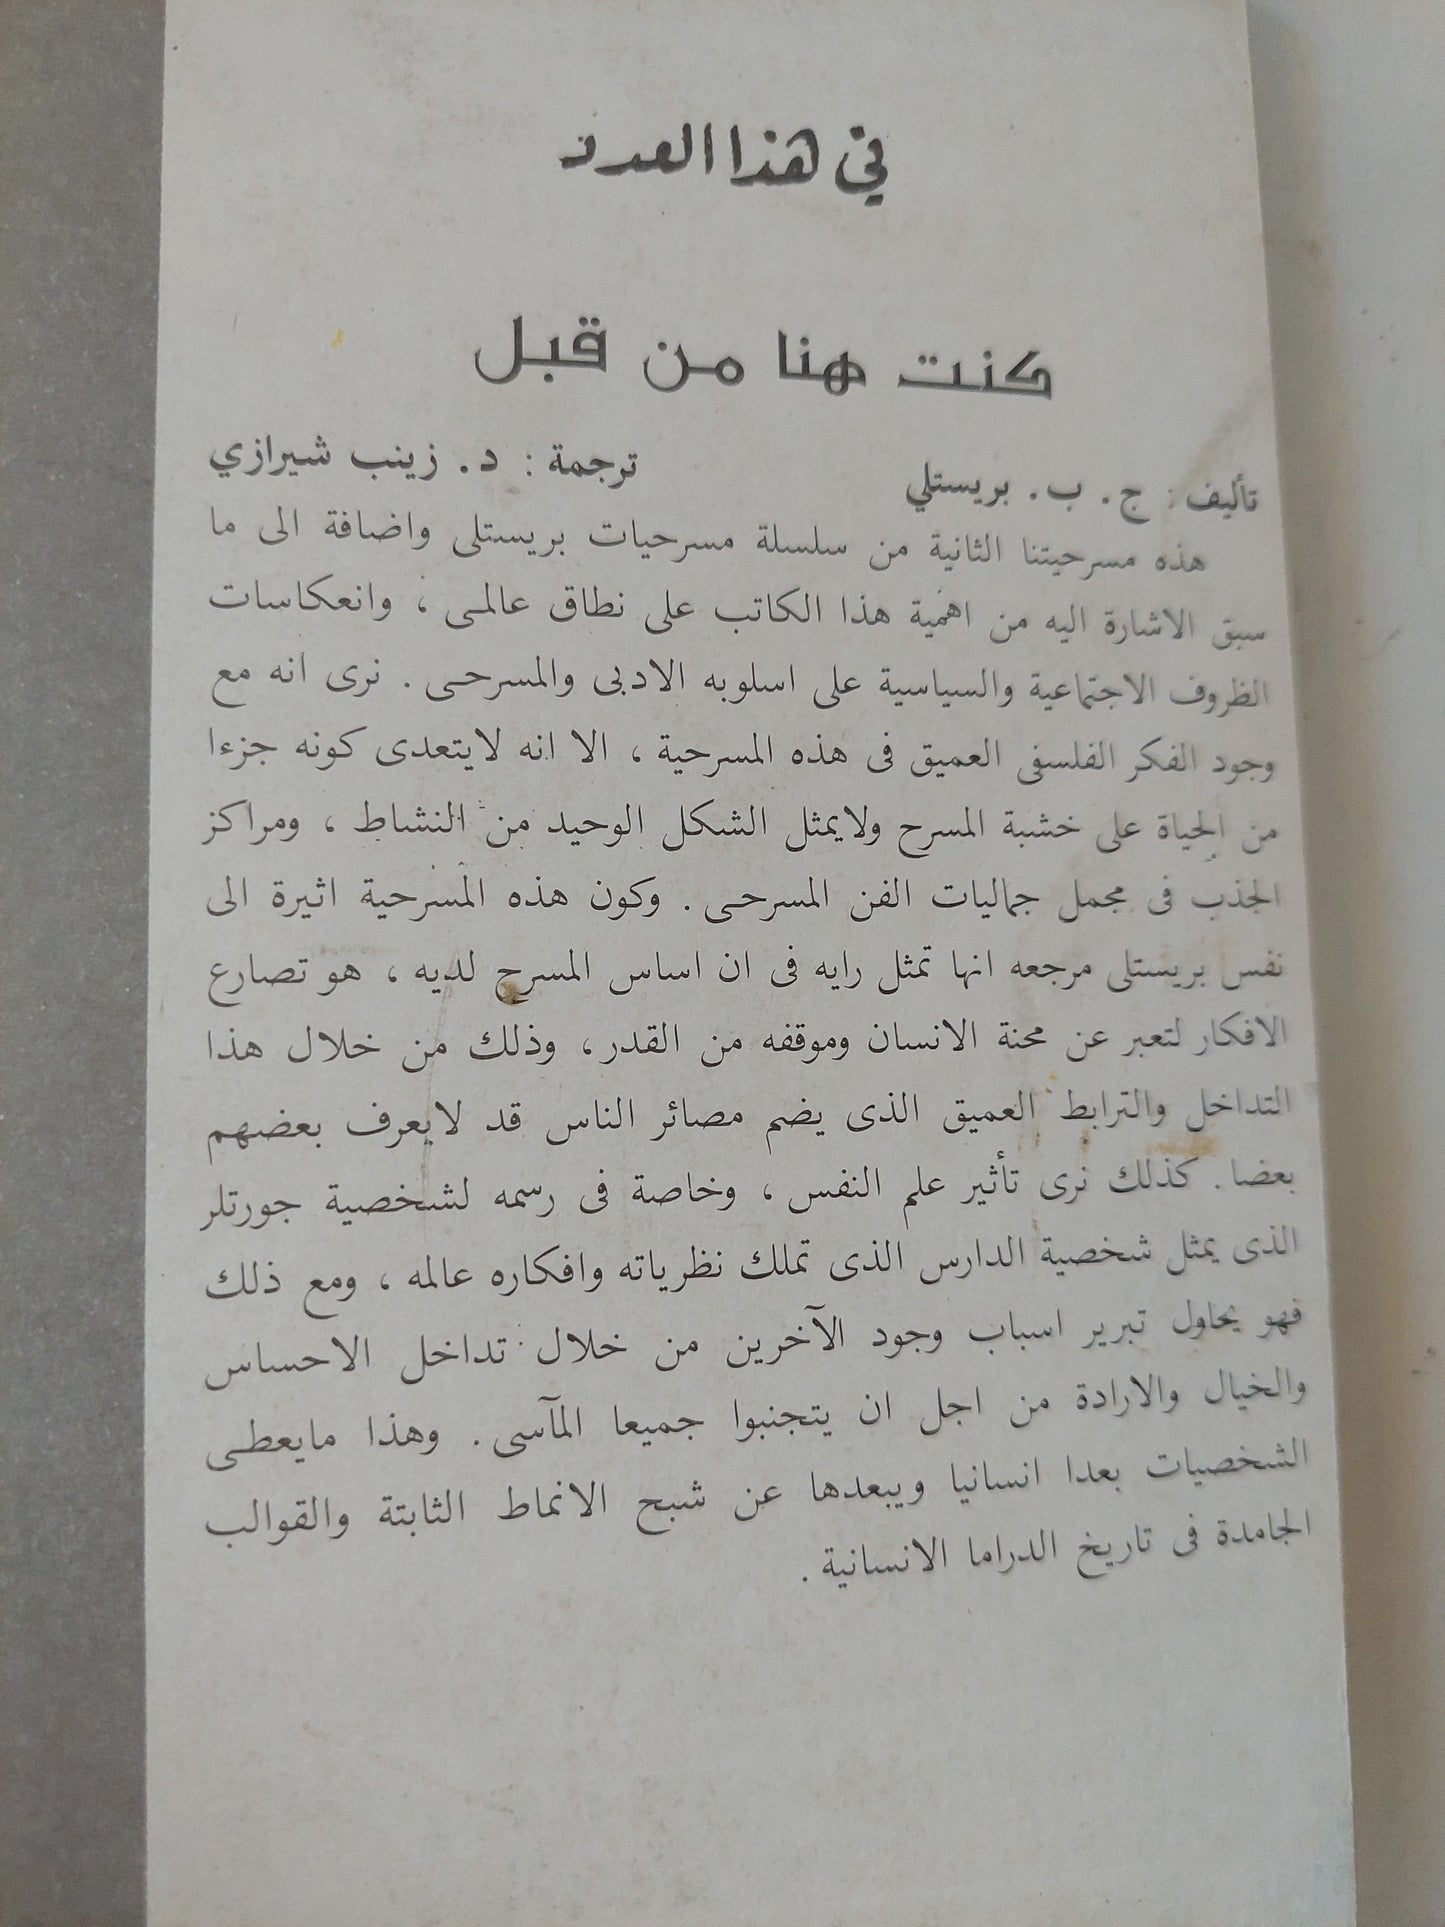 في هذا العدد
كنت هنا من قبل
تأليف : ج . ب . بريستلي ترجمة : د . زينب شيرازي
هذه مسرحيتنا الثانية من سلسلة مسرحيات بريستلى واضافة الى ما
سبق الاشارة اليه من اهمية هذا الكاتب على نطاق عالمى ، وانعكاسات
الظروف الاجتماعية والسياسية على اسلوبه الادبى والمسرحى . نرى انه مع
وجود الفكر الفلسفى العميق فى هذه المسرحية ، الا انه لايتعدى كونه جزءا
من الحياة على خشبة المسرح ولايمثل الشكل الوحيد من النشاط ، ومراكز
الجذب فى مجمل جماليات الفن المسرحى . وكون هذه المسرحية اثيرة الى
نفس بريستلى مرجعه انها تمثل رايه فى ان اساس المسرح لديه ، هو تصارع
الافكار لتعبر عن محنة الانسان وموقفه من القدر ، وذلك من خلال هذا
التداخل والترابط العميق الذى يضم مصائر الناس قد لايعرف بعضهم
بعضا . كذلك نرى تأثير علم النفس ، وخاصة فى رسمه لشخصية جورتلر
الذى يمثل شخصية الدارس الذى تملك نظرياته وافكاره عالمه ، ومع ذلك
فهو يحاول تبرير اسباب وجود الآخرين من خلال تداخل الاحساس
والخيال والارادة من اجل ان يتجنبوا جميعا المآسى . وهذا مايعطى
الشخصيات بعدا انسانيا ويبعدها عن شبح الانماط الثابتة والقوالب
الجامدة فى تاريخ الدراما الانسانية .